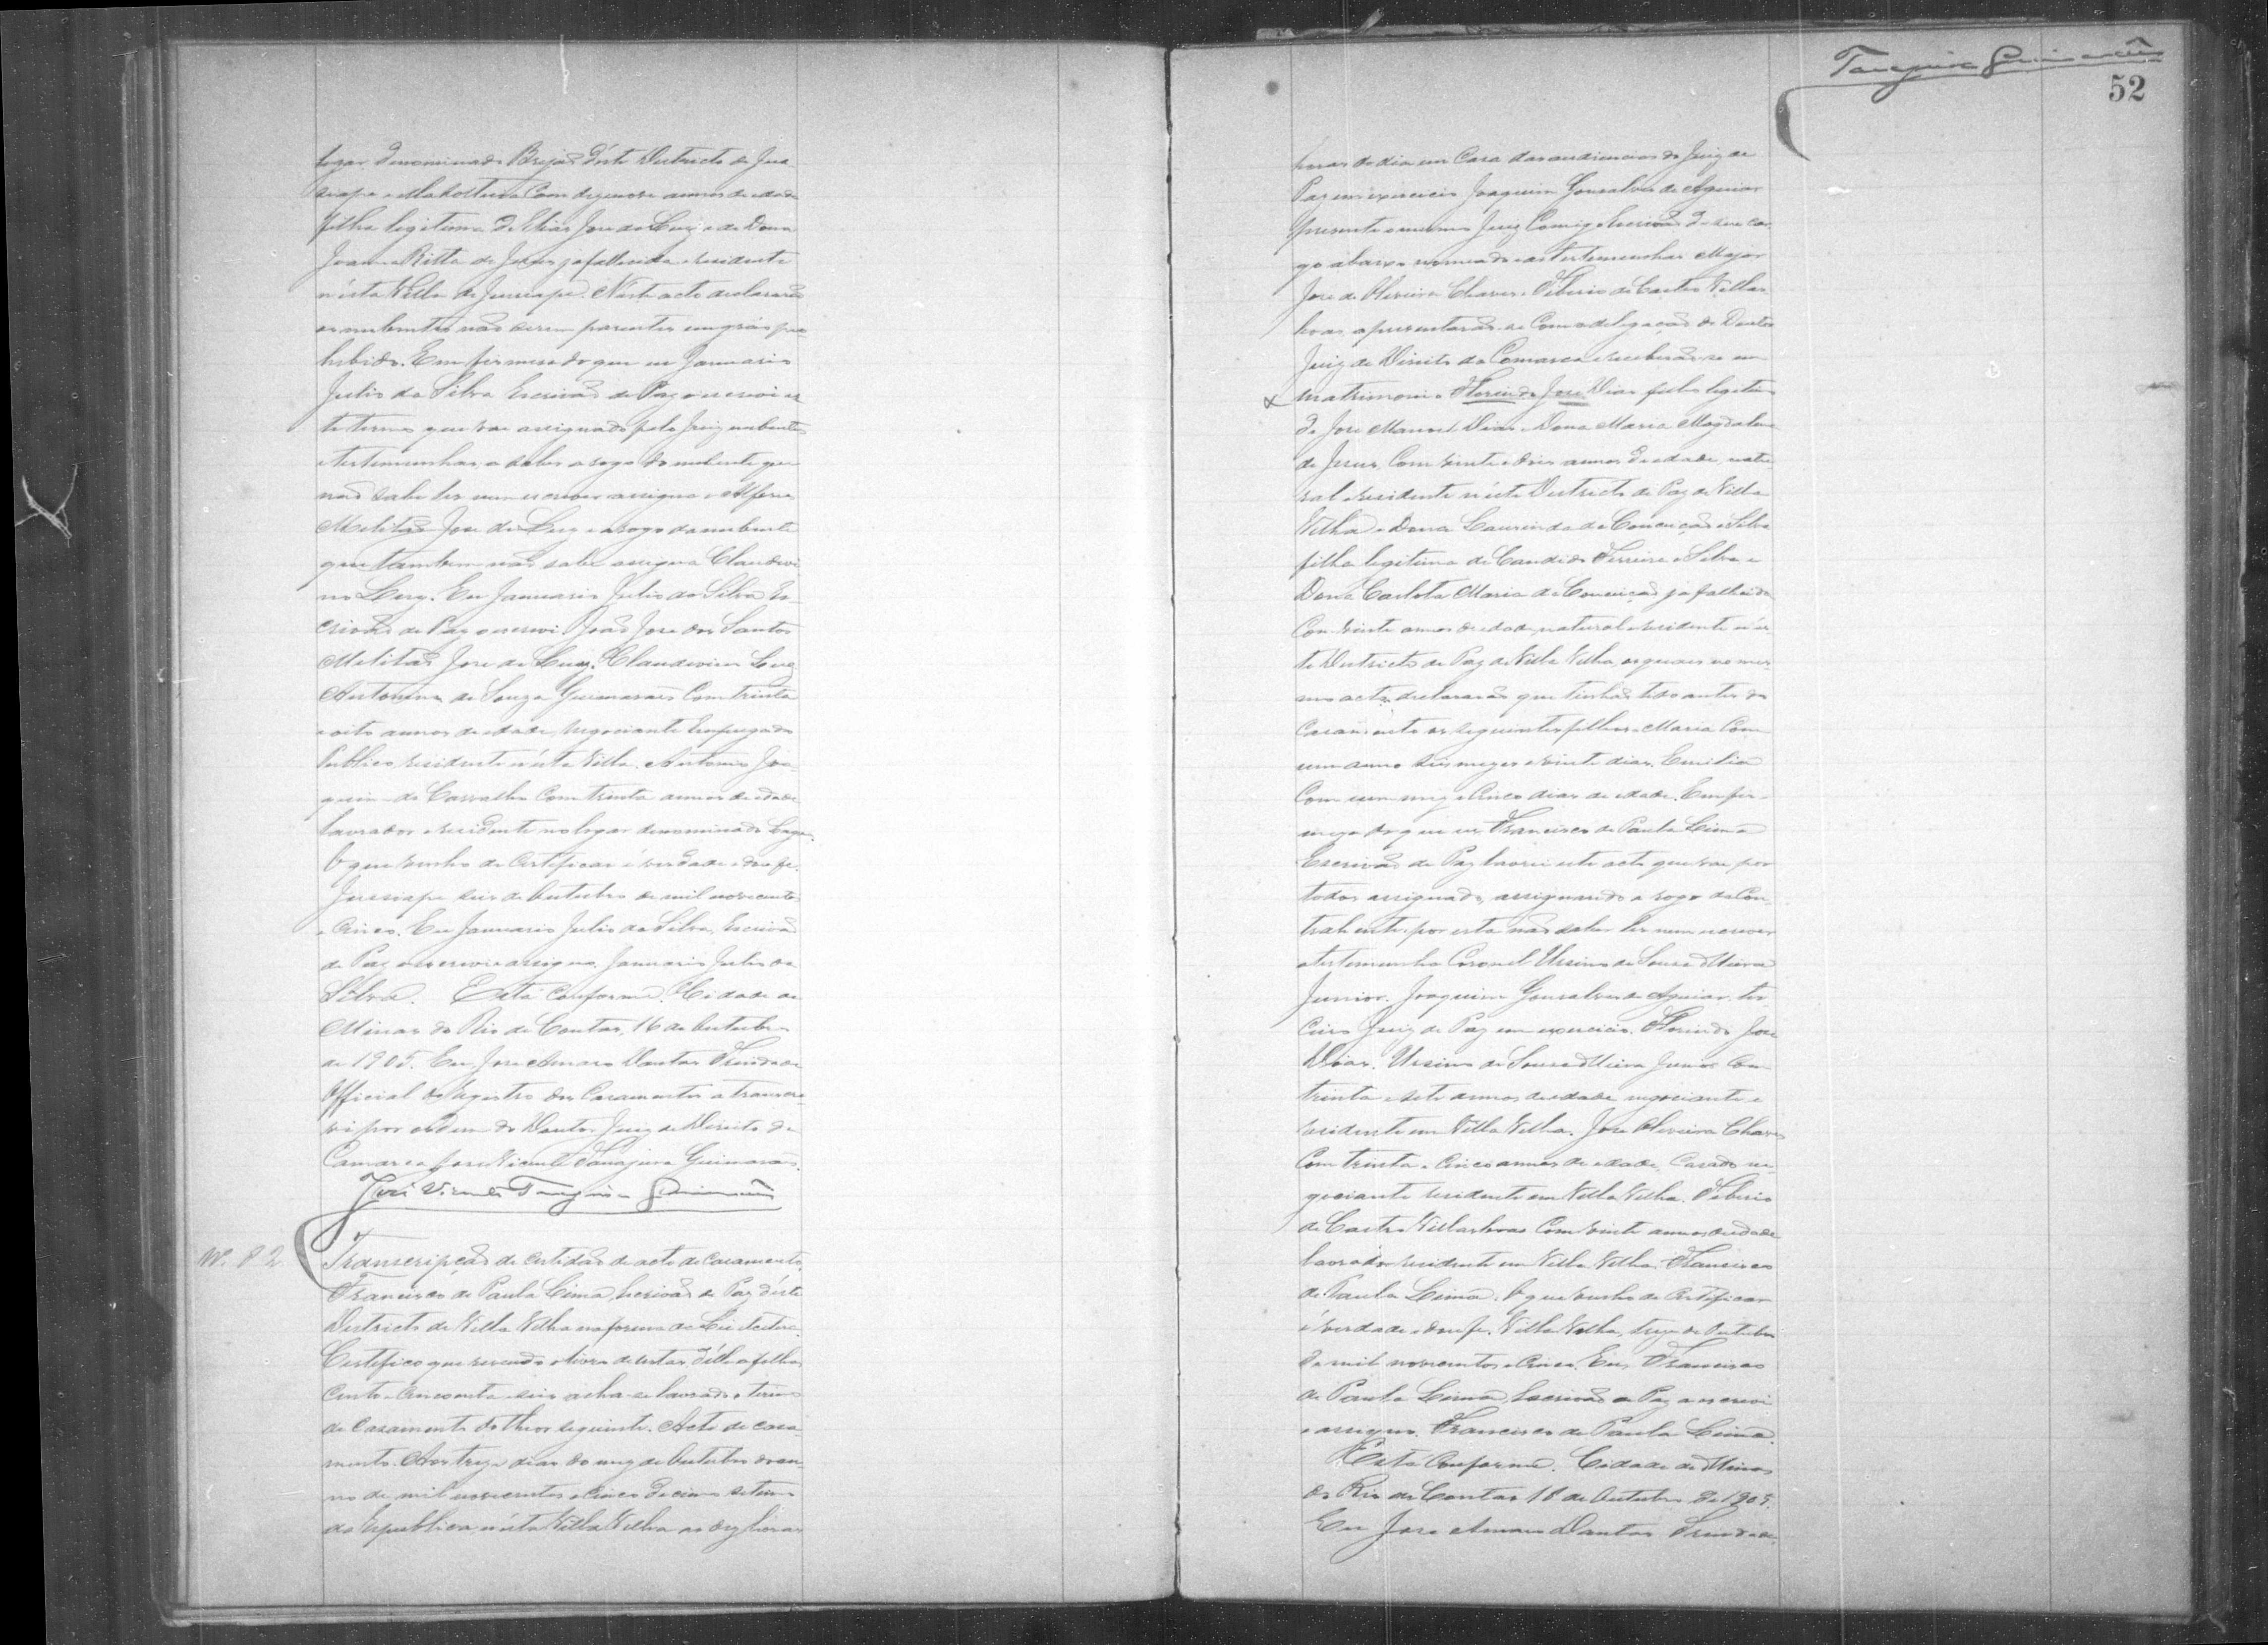 lugar denominado Brejão d'este Districto de Jus
siape e a outra com dezenove annos de edade
filha legitima de Elias José da Luz e de Dona
Joanna Ritta de Jesus já fallecida e residente
n'esta Villa de Jussiape. N'este acto declararão
os nubentes não serem parentes em gráo pro
hibido. E em firmesa do que eu Januario
Julio da Silva Escrivão de Paz o escrevi es
te termo que vae assignado pelo Juiz nubentes
e testemunhas, a saber a rogo do nubente que
não sabe ler nem escrever assigna o Alferes
Melitão José da Luz e a rogo da nubente
que tambem não sabe assigna Claudevi
no Luz. Eu Januario Julio da Silva Es-
crivão de Paz o escrevi. João José dos Santos
Melitão José da Luz. Claudevino Luz
Antonino de Souza Guimarães com trinta
e oito annos de edade, negociante Empregado
Publico residente n'esta Villa. Antonio Joa-
quim de Carvalho com trinta annos de edade
lavrador e residente no lugar denominado
O que venho de certificar é verdade e dou fé.
Jussiape seis de Outubro de mil novecentos
e cinco. Eu Januario Julio da Silva, Escrivão
de Paz o escrevi e assigno. Januario Julio da
Silva. Está conforme. Cidade de
Minas do Rio de Contas, 16 de Outubro
de 1905. Eu José Amaro Dantas Trindade
Official do Registro dos Casamentos a transcre
vi por ordem do Doutor Juiz de Direito da
Comarca José Vicente Tanajura Guimarães.
José Vicente Tanajura Guimarães
Nº. 82
Transcripção de certidão de acto de casamento.
Francisco de Paula Lima, Escrivão de Paz d'este
Districto de Villa Velha na forma da Lei etc etc.
Certifico que revendo o livro de notas, d'elle a folhas
cento e cincoenta e seis acha-se lavrado o termo
de casamento do theor seguinte. Acto de casa
mento. Aos treze dias do mez de Outubro do an-
no de mil novecentos e cinco decimo setimo
da Republica n'esta Villa Velha as dez horas
Tanajura Guimarães
52
horas do dia em Casa das audiencias do Juiz de
Paz em exercicio Joaquim Gonsalves de Aguiar
presente o mesmo Juiz Comigo Escrivão de seu car
go abaixo nomeado e as testemunhas Major
José de Oliveira Chaves e Tiberio de Castro Villas
boas, apresentarão-se com a delegação do Doutor
Juiz de Direito da Comarca e receberão-se em
x matrimonio Florindo José Dias filho legitimo
de José Manoel Dias e Dona Maria Magdalena
de Jesus, com vinte e dois annos de edade, natu
ral e residente n'este Districto de Paz de Villa
Velha e Dona Laurinda da Conceição e Silva
filha legitima de Candido Ferreira e Silva e
Dona Carlota Maria da Conceição já fallecida
com vinte annos de edade, natural e residente n'es
te Districto de Paz de Villa Velha, os quaes no mes
mo acto, declararão que tinhão tido antes do
casamento os seguintes filhos: Maria com
um anno seis mezes e vinte dias, Emilia
com um mez e cinco dias de edade. E em fir-
meza do que eu Francisco de Paula Lima
Escrivão de Paz lavrei este acto que vae por
todos assignado, assignando a rogo da con
trahente, por esta não saber ler nem escrever
a testemunha Coronel Ursino de Souza Meira
Junior. Joaquim Gonsalves de Aguiar, ter
ceiro Juiz de Paz em exercicio. Florindo José
Dias. Ursino de Souza Meira Junior com
trinta e sete annos de edade negociante e
residente em Villa Velha. José Oliveira Chaves
com trinta e cinco annos de edade, casado ne
gociante residente em Villa Velha. Tiberio
de Castro Villasboas com vinte annos de edade
lavrador residente em Villa Velha. Francisco
de Paula Lima. O que venho de certificar
é verdade e dou fé. Villa Velha, treze de Outubro
de mil novecentos e cinco. Eu, Francisco
de Paula Lima, Escrivão de Paz o escrevi
e assigno. Francisco de Paula Lima.
Está conforme. Cidade de Minas
do Rio de Contas 18 de Outubro de 1905.
Eu José Amaro Dantas Trindade,